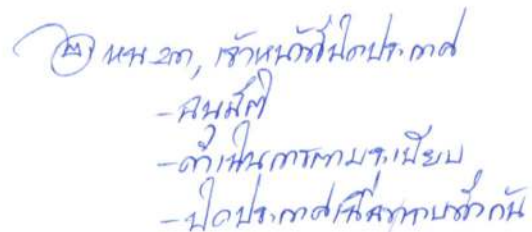 ๒ หน. , เจ้าหน้าที่ปิดประกาศ
- อนุมัติ
- ดำเนินการตามระเบียบ
- ปิดประกาศเพื่อทราบทั่วกัน